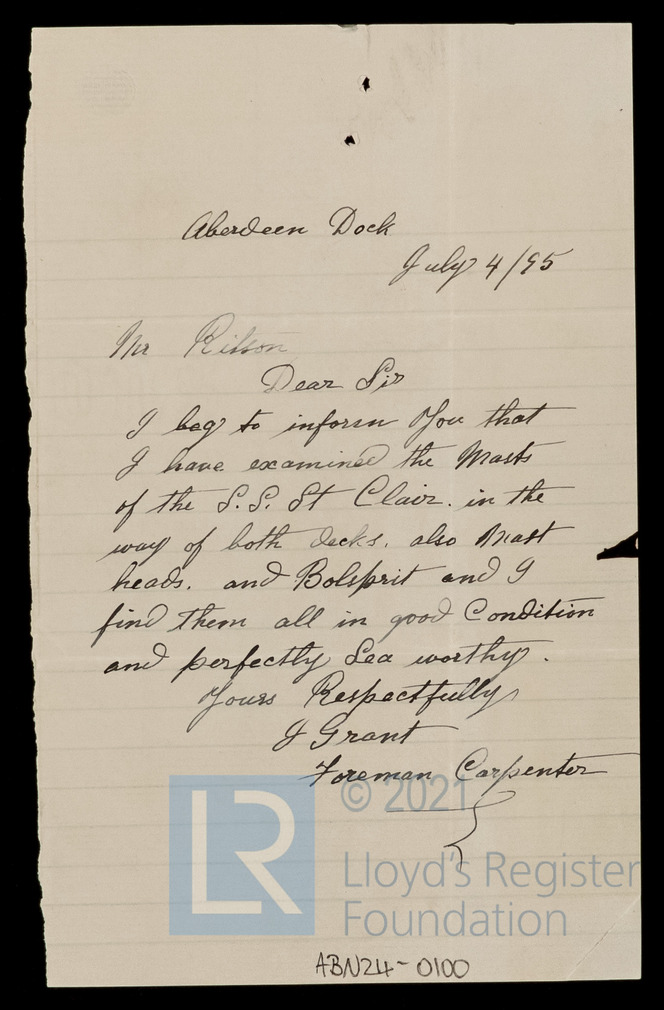 Aberdeen Dock
July 4/95
Mr Ritson
Dear Sir
I beg to inform You that
I have examined the Masts
of the S.S. St Clair. in the
way of both decks. also Mast
heads. and Bolsprit and I
find them all in good Condition
and perfectly Sea worthy.
Yours Respectfully
J Grant
Foreman Carpenter
© 2021
LR
Lloyd's Register
Foundation
ABN24-0100